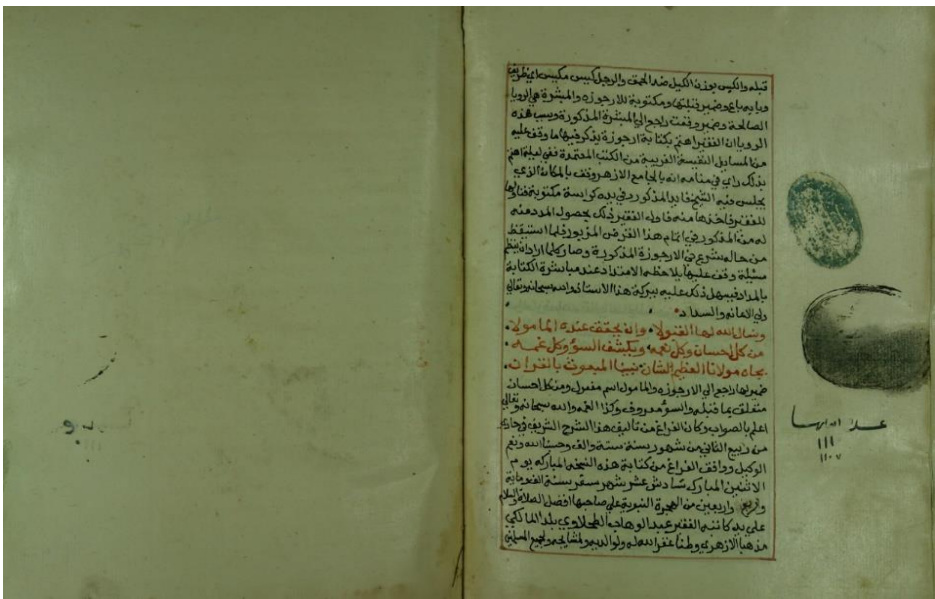 قبله والكيس بوزن الكيل ضد الحمق والرجل كيس مكيس اي ظريف
وبابه باع وضمير قبلتها ومكتوبة للارجوزه والمبشرة هي الرويا
الصالحة وضمير وقفت راجع الي المبشرة المذكورة وسبب هذه
الرويا ان الفقير اهتم بكتابة ارجوزة يذكر فيها ما وقف عليه
من المسايل النفيسة الغريبة من الكتب المعتمدة ففي ليلة اهتم
بذلك راي في منامه انه بالجامع الازهر وقف بالمكان الذي
يجلس فيه الشيخ المذكور وفي يده كراسة مكتوبة فناولها
للفقير فاخذها منه فاول الفقير ذلك بحصول المدد منه
له من المذكور في اتمام هذا الغرض المزبور فلما استيقظ
من حاله شرع في الارجوزة المذكورة وصار كلما اراد ان ينظم
مسيلة وقف عليها يلاحظه الامتداد عند مباشرة الكتابة
بالمداد فيسهل ذلك عليه ببركة هذا الاستاذ والله سبحانه وتعالي
ولي الاعانه والسداد
ونسال الله لها القبولا وان يحقق عنده المامولا
من كل احسان وكل نعمه ويكشف السؤ وكل غمه
بجاه مولانا العظيم الشان نبينا المبعوث بالقران
ضمير لها راجع الي الارجوزه والمامول اسم مفعول ومن كل احسان
متعلق بما قبله والسؤ معروف وكذا الغمه والله سبحانه وتعالي
اعلم بالصواب وكان الفراغ من تاليف هذا الشرح الشريف في حادي
من ربيع الثاني من شهور سنة ستة والف وحسبنا الله ونعم
الوكيل ووافق الفراغ من كتابة هذه النسخه المباركه يوم
الاثنين المبارك سادس عشر شهر سنة الف وماية
واربعين من الهجرة النبوية علي صاحبها افضل الصلاة والسلام
علي يد كاتبه الفقير عبد الوهاب الطحلاوي بلدا المالكي
مذهبا الازهري وطنا غفر الله له ولوالديه ولمشايخه ولجميع المسلمين